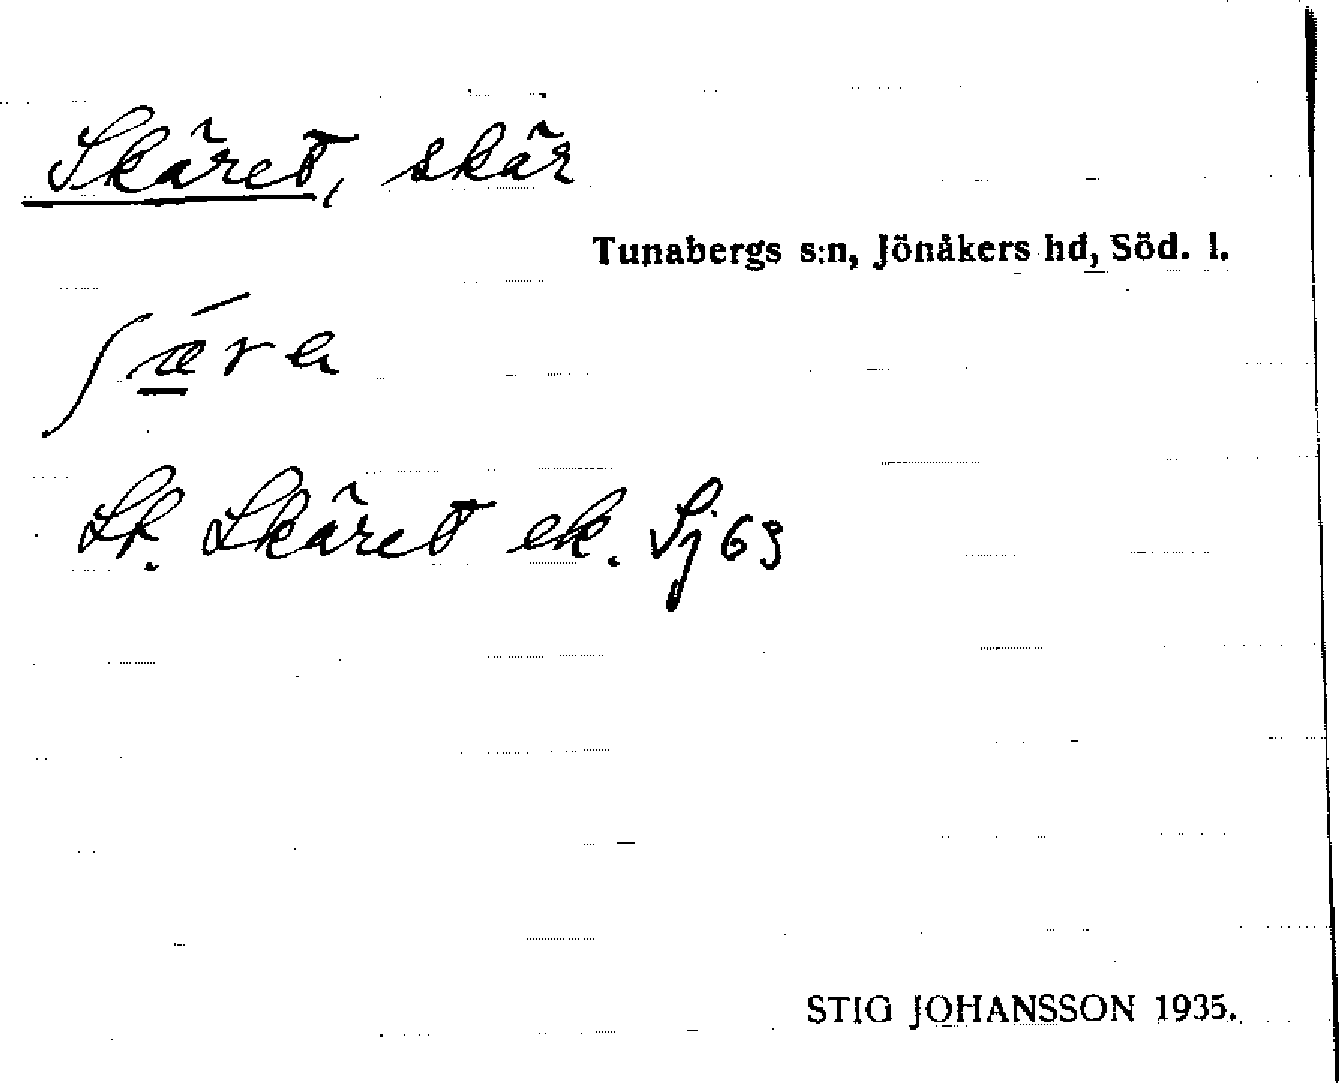 Skäret, skär
Tunabergs s:n, Jönåkers hd, Söd. l.
ʃǽ̲ra
Sk. Skäret ek. Sj 63
STIG JOHANSSON 1935.